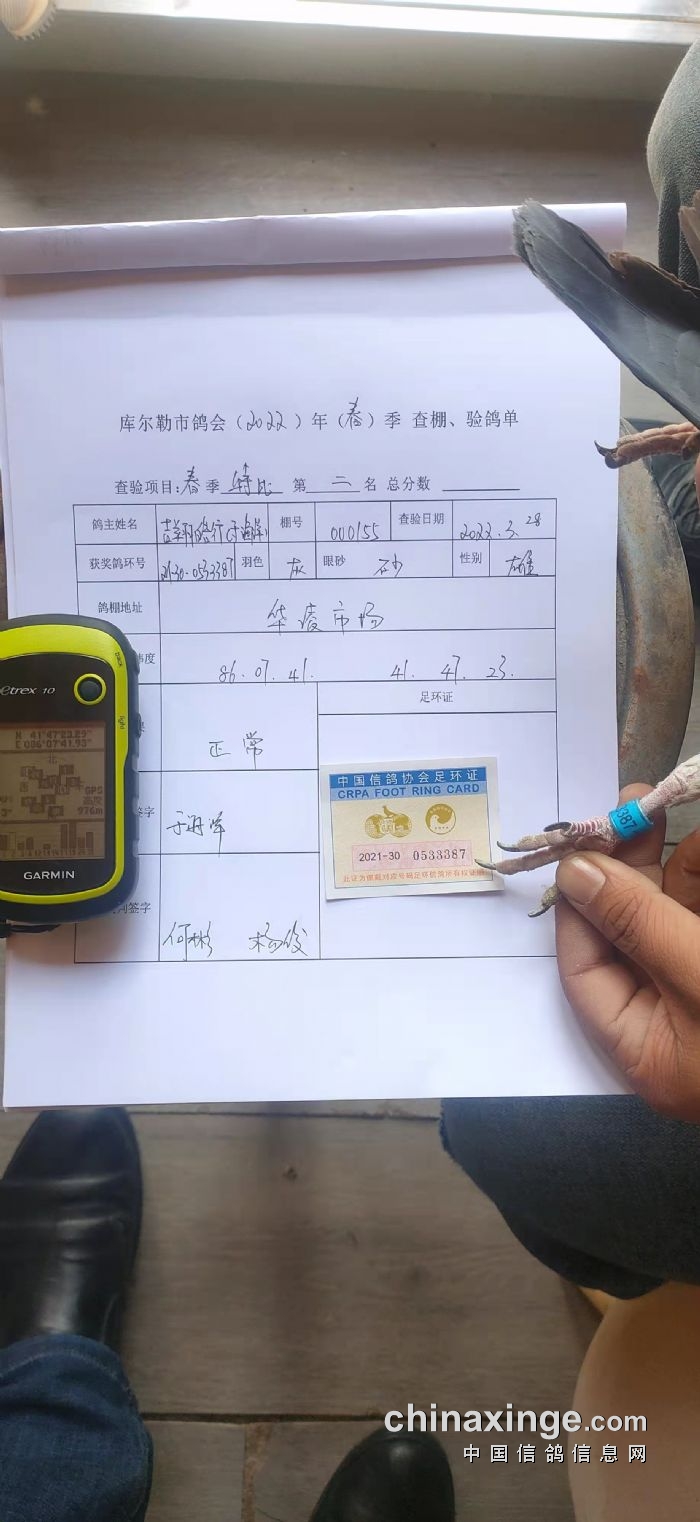 库尔勒市鸽会（2022）年（春）季 查棚、验鸽单
查验项目：春季特比 第二名 总分数
鸽主姓名 吉翔路行(于海洋) 棚号 000155 查验日期 2022.3.28
获奖鸽环号 21-30-0533387 羽色 灰 眼砂 砂 性别 雄
鸽棚地址 华凌市场
纬度 86.07.41. 41.47.23.
足环证
正常
中国信鸽协会足环证
CRPA FOOT RING CARD
2021-30 0533387
此证为佩戴对应号码足环信鸽所有权证明
签字
签字 何彬 杨俊
etrex 10
back
light
N 41°47'23.29"
E 086°07'41.93"
北
GPS
高度
976m
GARMIN
387
chinaxinge.com
中国信鸽信息网